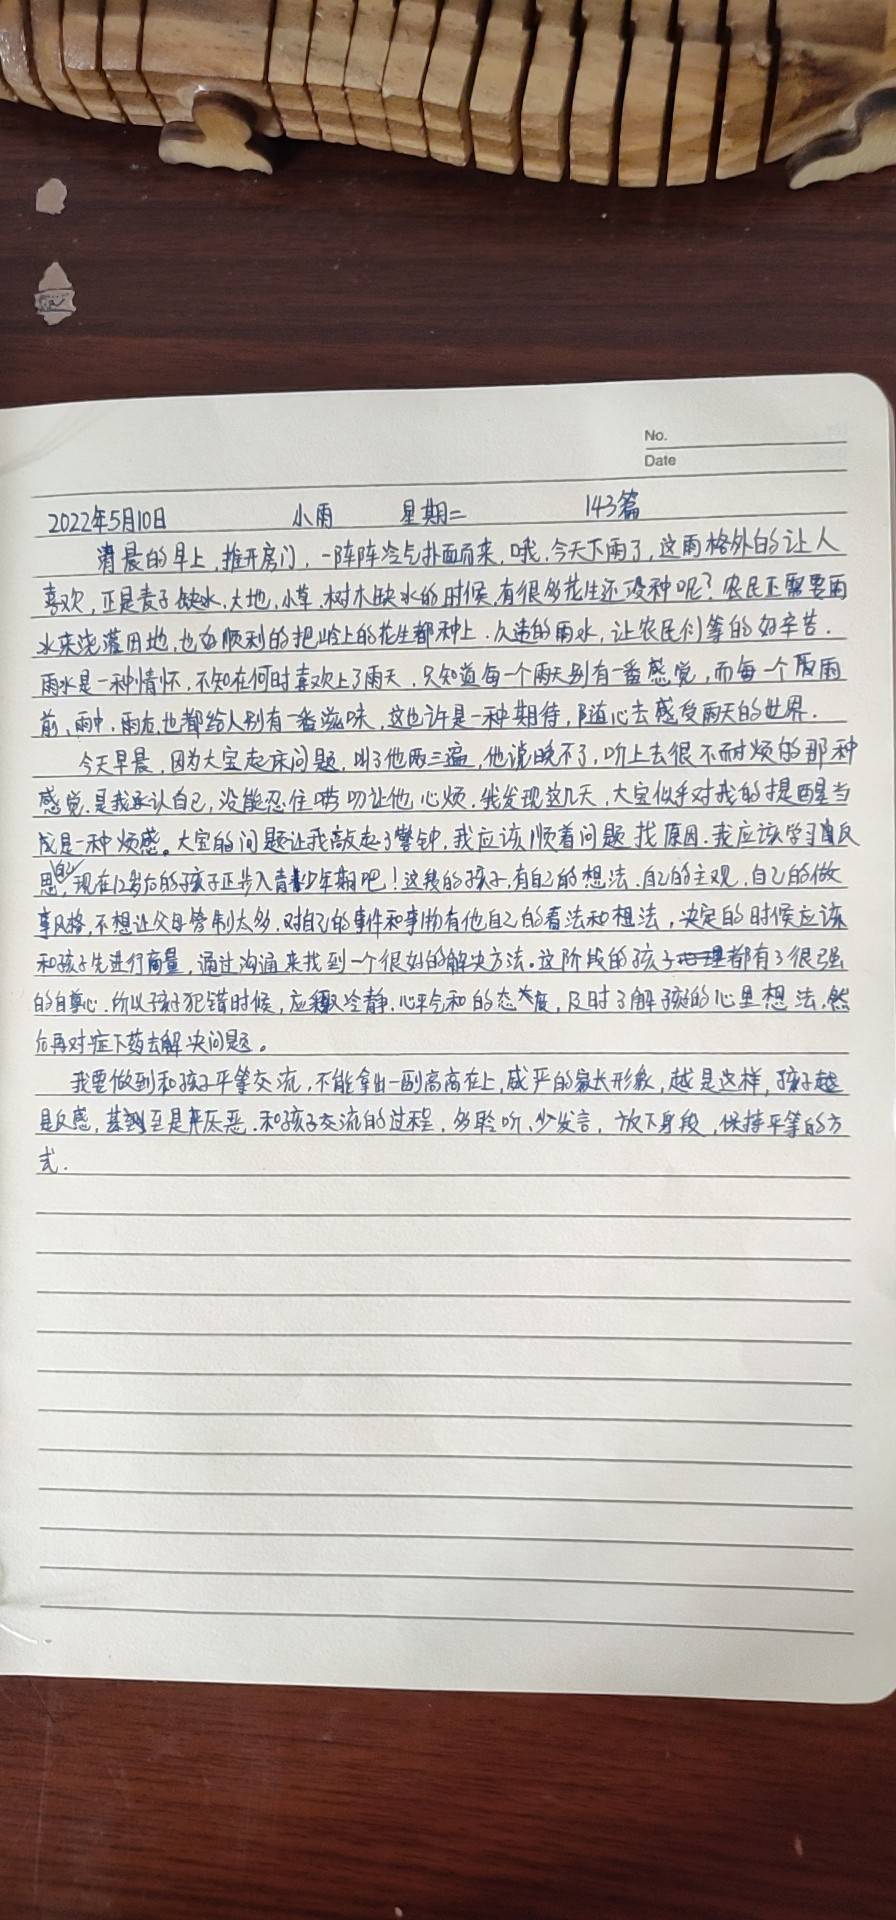 No.
Date
2022年5月10日 小雨 星期二 143篇
清晨的早上,推开房门,一阵阵冷气扑面而来,哦,今天下雨了,这雨格外的让人
喜欢,正是麦子缺水,大地,小草,树木缺水的时候,有很多花生还没种呢?农民正需要雨
水来浇灌田地,也好顺利的把岭上的花生都种上.久违的雨水,让农民们等的好辛苦.
雨水是一种情怀,不知在何时喜欢上了雨天,只知道每一个雨天别有一番感觉,而每一个雨
前、雨中、雨后,也都给人别有一番滋味,这也许是一种期待,随心去感受雨天的世界.
今天早晨,因为大宝起床问题,叫了他两三遍,他说晚不了,听上去很不耐烦的那种
感觉.是我承认自己,没能忍住唠叨让他心烦.我发现这几天,大宝似乎对我的提醒当
成是一种烦感。大宝的问题让我敲起了警钟,我应该顺着问题找原因.我应该学习反
思自己,现在12岁后的孩子正步入青少年期吧!这我的孩子,有自己的想法.自己的主观,自己的做
事风格,不想让父母管制太多,对自己的事件和事物有他自己的看法和想法,决定的时候应该
和孩子先进行商量,通过沟通来找到一个很好的解决方法.这阶段的孩子都有了很强
的自尊心.所以孩子犯错时候,应采取冷静.心平气和的态度,及时了解孩子的心里想法,然
后再对症下药去解决问题。
我要做到和孩子平等交流,不能拿出一副高高在上,威严的家长形象,越是这样,孩子越
是反感,甚至是厌恶.和孩子交流的过程,多聆听,少发言,放下身段,保持平等的方
式.